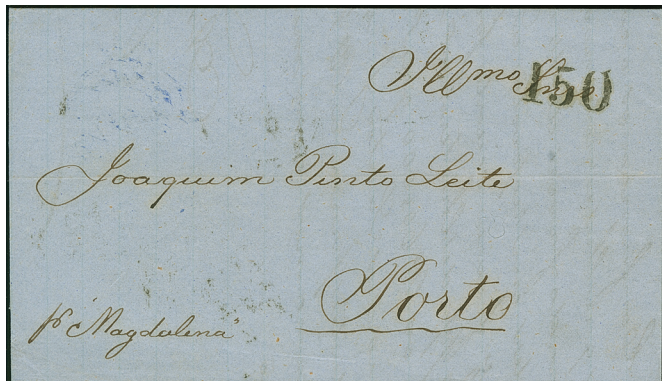 Illmo Snr
150
Joaquim Pinto Leite
Porto
pr "Magdalena"